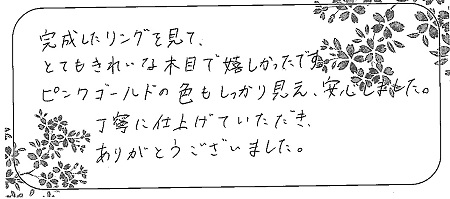 完成したリングを見て、
とてもきれいな木目で嬉しかったです。
ピンクゴールドの色もしっかり見え、安心しました。
丁寧に仕上げていただき、
ありがとうございました。